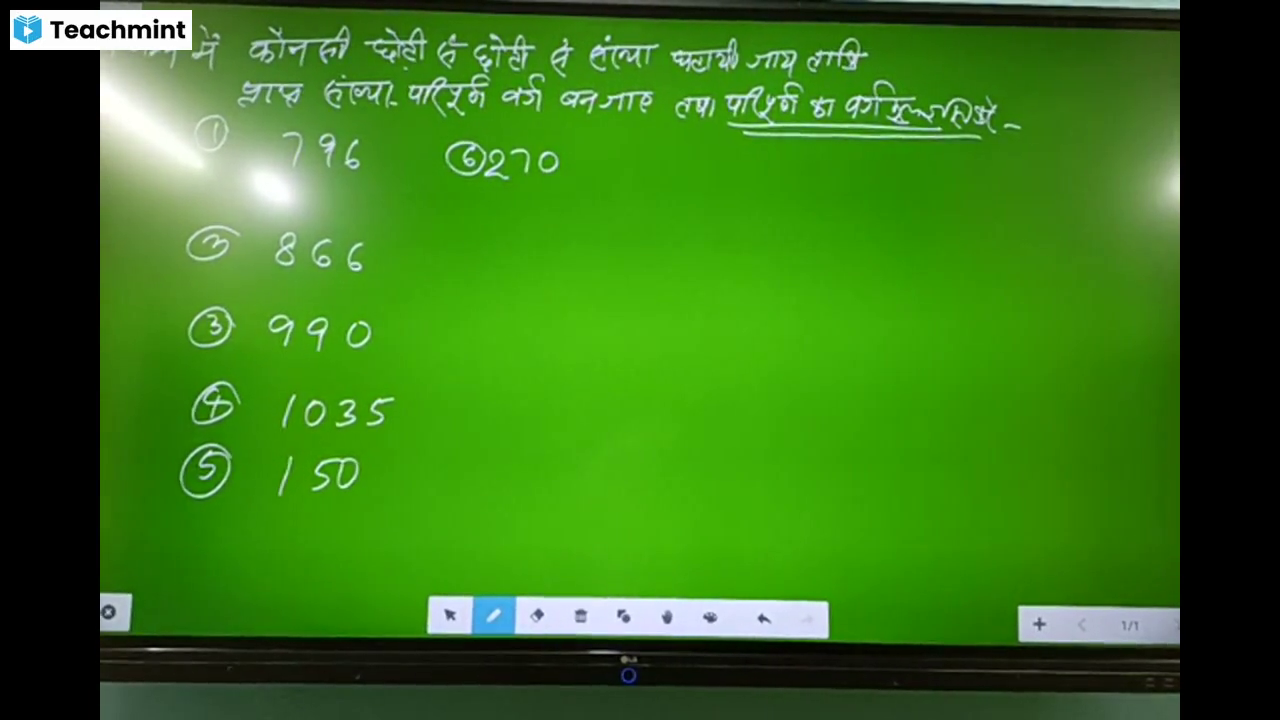 Teachmint
में कौनसी छोटी से छोटी से संख्या घटायी जाय ताकि
प्राप्त संख्या परिपूर्ण वर्ग बन जाए तथा परिपूर्ण का वर्गमूल
① 796 ⑥ 270
② 866
③ 990
④ 1035
⑤ 150
1/1
LG